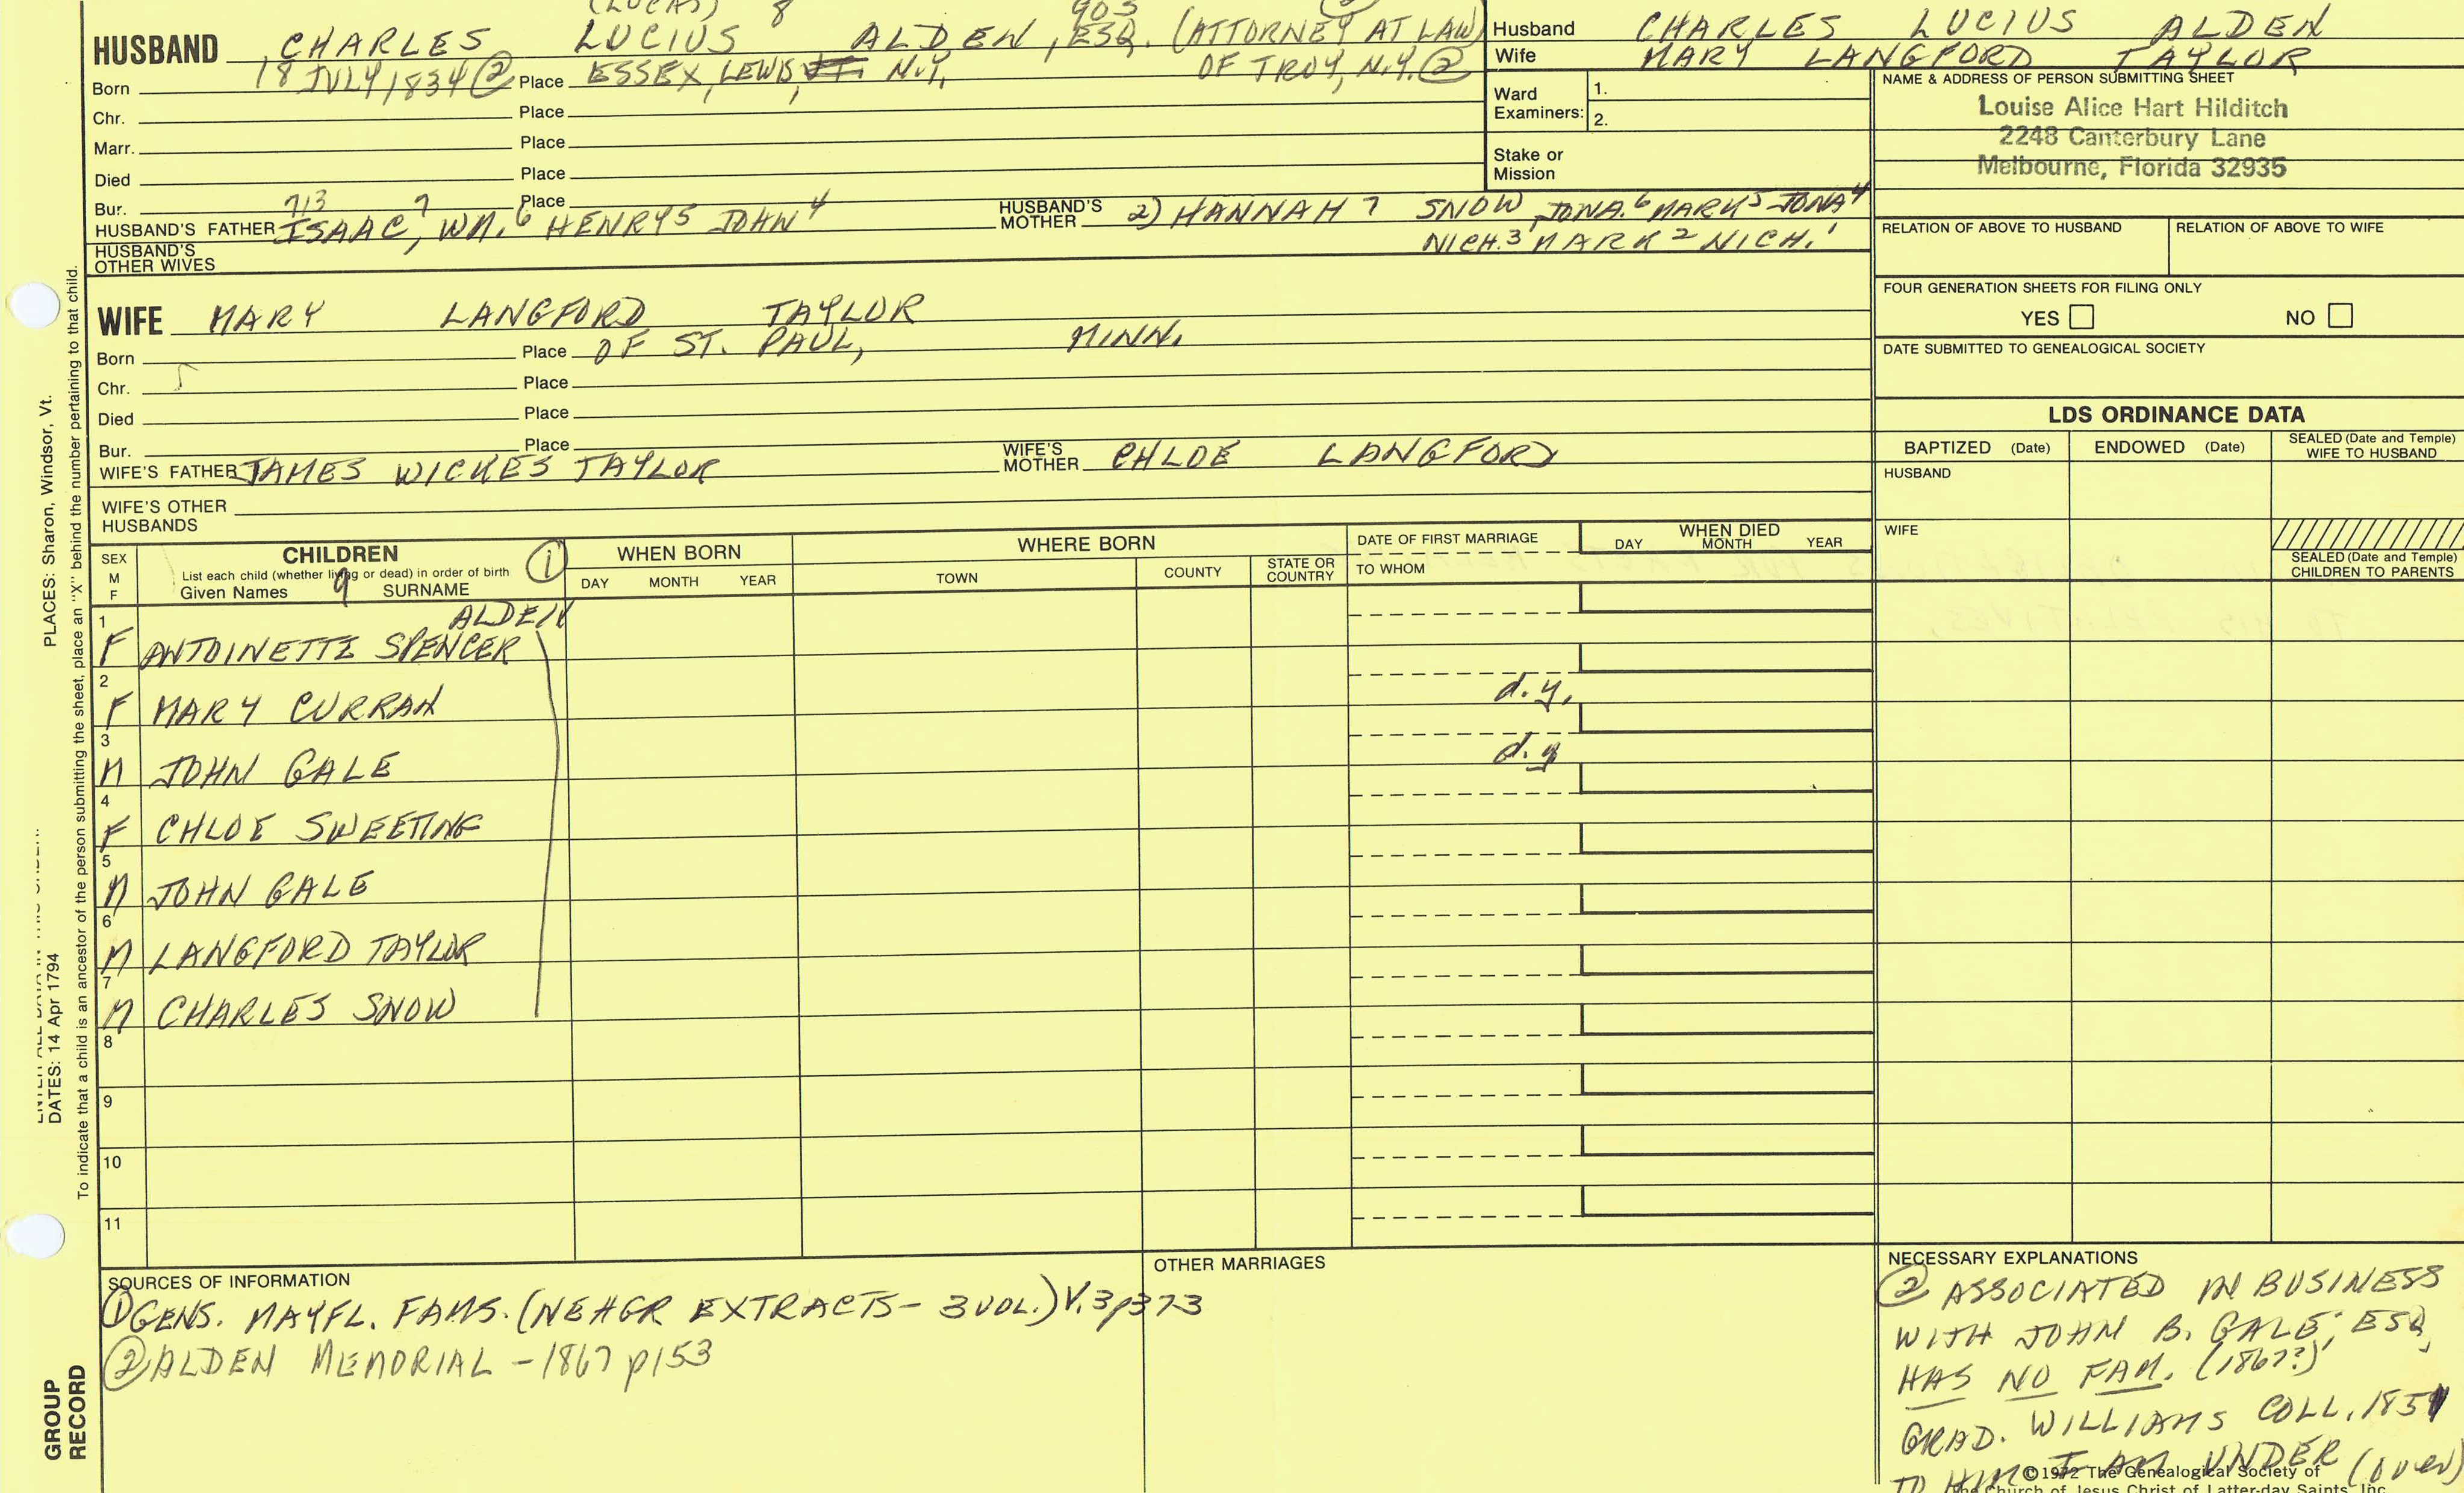 (LUCAS) 8 903
HUSBAND CHARLES LUCIUS ALDEN, ESQ. (ATTORNEY AT LAW)
Born 18 JULY 1834 ② Place ESSEX, LEWIS, N.Y. OF TROY, N.Y. ②
Chr. Place
Marr. Place
Died Place
Bur. Place
713 7
HUSBAND'S FATHER ISAAC, WM.6 HENRY5 JOHN4 HUSBAND'S MOTHER 2) HANNAH7 SNOW, JONA.6 MARK5 JONA4
NICH.3 MARK2 NICH.1
HUSBAND'S OTHER WIVES
WIFE MARY LANGFORD TAYLOR
Born Place OF ST. PAUL, MINN.
Chr. Place
Died Place
Bur. Place
WIFE'S FATHER JAMES WICKES TAYLOR WIFE'S MOTHER CHLOE LANGFORD
WIFE'S OTHER HUSBANDS
Husband CHARLES LUCIUS ALDEN
Wife MARY LANGFORD TAYLOR
Ward Examiners: 1.
2.
Stake or Mission
NAME & ADDRESS OF PERSON SUBMITTING SHEET
Louise Alice Hart Hilditch
2248 Canterbury Lane
Melbourne, Florida 32935
RELATION OF ABOVE TO HUSBAND RELATION OF ABOVE TO WIFE
FOUR GENERATION SHEETS FOR FILING ONLY
YES NO
DATE SUBMITTED TO GENEALOGICAL SOCIETY
LDS ORDINANCE DATA
BAPTIZED (Date) ENDOWED (Date) SEALED (Date and Temple) WIFE TO HUSBAND
HUSBAND
WIFE
SEALED (Date and Temple) CHILDREN TO PARENTS
SEX M F
CHILDREN ①
List each child (whether living or dead) in order of birth
Given Names 9 SURNAME
WHEN BORN
DAY MONTH YEAR
WHERE BORN
TOWN COUNTY STATE OR COUNTRY
DATE OF FIRST MARRIAGE
TO WHOM
WHEN DIED
DAY MONTH YEAR
ALDEN
1 F ANTOINETTE SPENCER
2 F MARY CURRAN d.y.
3 M JOHN GALE d.y
4 F CHLOE SWEETING
5 M JOHN GALE
6 M LANGFORD TAYLOR
7 M CHARLES SNOW
8
9
10
11
SOURCES OF INFORMATION
① GENS. MAYFL. FAMS. (NEHGR EXTRACTS- 3 VOL.) V.3 p373
② ALDEN MEMORIAL - 1867 p153
OTHER MARRIAGES
NECESSARY EXPLANATIONS
② ASSOCIATED IN BUSINESS
WITH JOHN B. GALE, ESQ,
HAS NO FAM. (1867?)
GRAD. WILLIAMS COLL. 185
TO HIM I AM UNDER (over)
©1972 The Genealogical Society of
The Church of Jesus Christ of Latter-day Saints, Inc.
PLACES: Sharon, Windsor, Vt.
DATES: 14 Apr 1794
To indicate that a child is an ancestor of the person submitting the sheet, place an "X" behind the number pertaining to that child.
GROUP RECORD